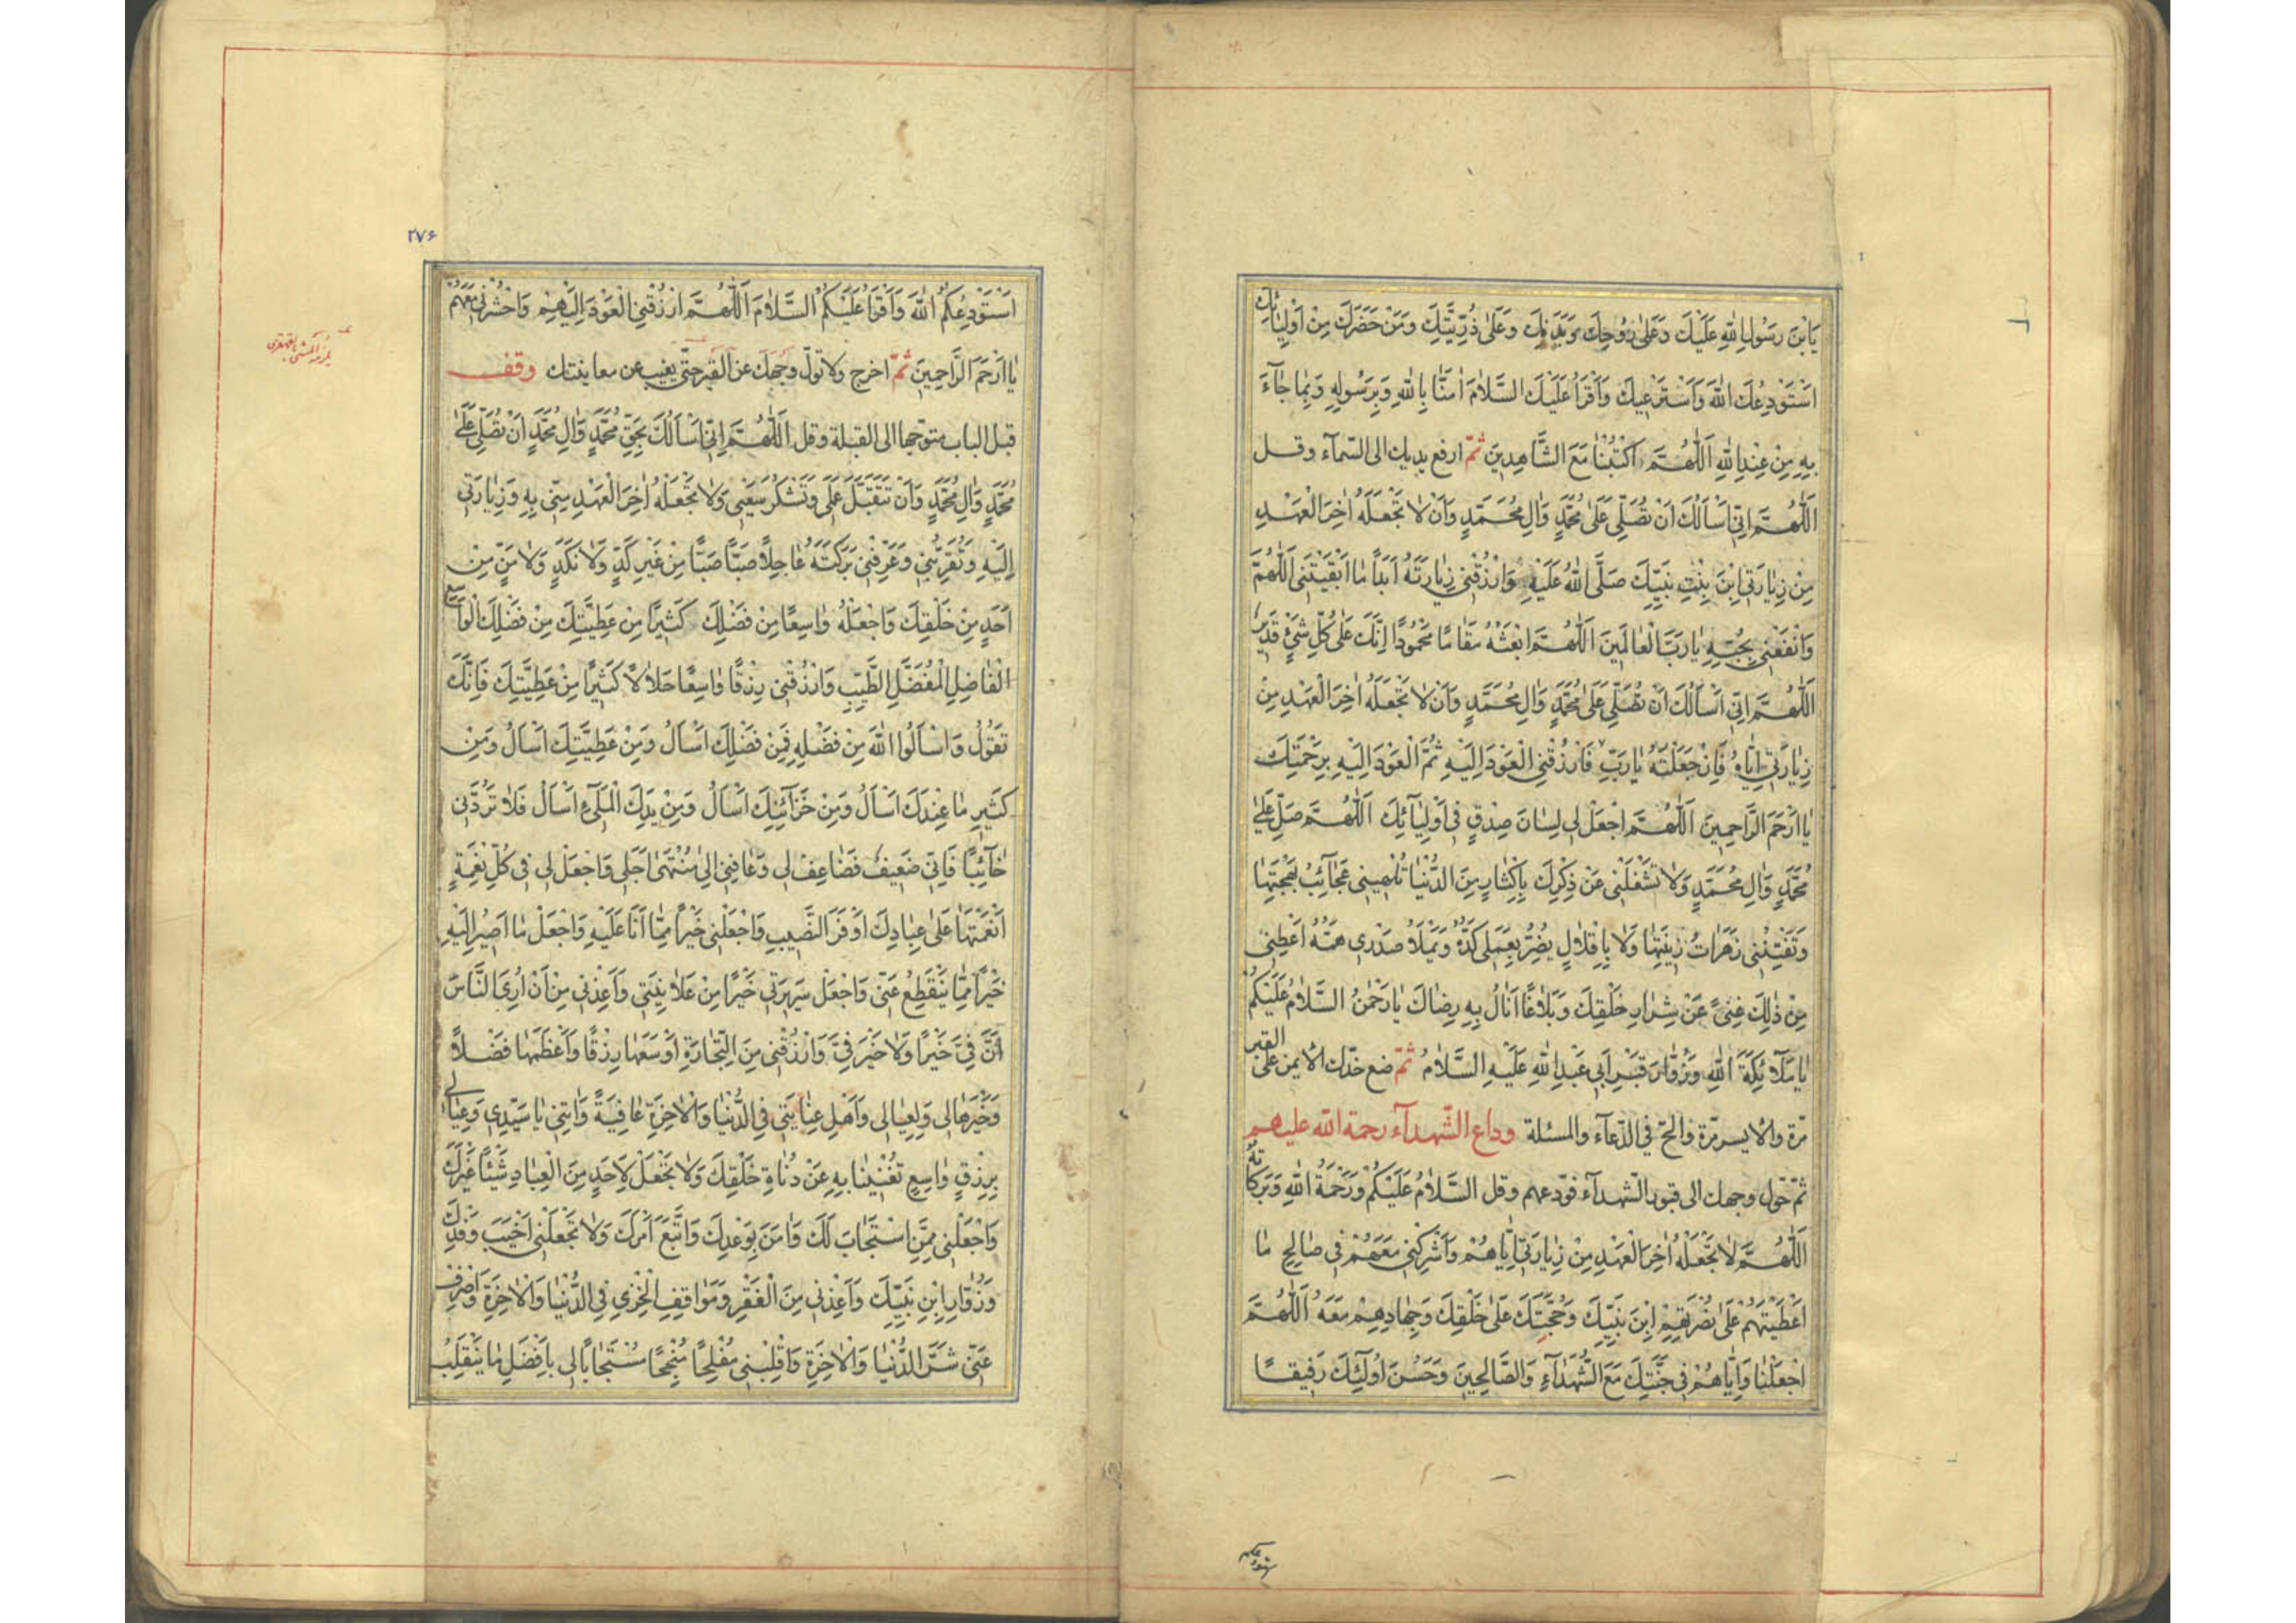 يَابْنَ رَسُولِ اللهِ عَلَيْكَ وَعَلٰى رُوحِكَ وَبَدَنِكَ وَعَلٰى ذُرِّيَّتِكَ وَمَنْ حَضَرَكَ مِنْ اَوْلِيٰائِكَ
اَسْتَوْدِعُكَ اللهَ وَاَسْتَرْعِيكَ وَاَقْرَاُ عَلَيْكَ السَّلاٰمَ اٰمَنّٰا بِاللهِ وَبِرَسُولِهِ وَبِمٰا جٰآءَ
بِهِ مِنْ عِنْدِ اللهِ اَللّٰهُمَّ اكْتُبْنٰا مَعَ الشّٰاهِدِينَ ثمّ ارفع يديك الى السّمآء وقل
اَللّٰهُمَّ اِنّٖى اَسْاَلُكَ اَنْ تُصَلِّىَ عَلٰى مُحَمَّدٍ وَاٰلِ مُحَمَّدٍ وَاَنْ لاٰ تَجْعَلَهُ اٰخِرَ الْعَهْدِ
مِنْ زِيٰارَتِى ابْنَ بِنْتِ نَبِيِّكَ صَلَّى اللهُ عَلَيْهِ وَارْزُقْنِى زِيٰارَتَهُ اَبَدًا مٰا اَبْقَيْتَنِى اَللّٰهُمَّ
وَانْفَعْنِى بِحُبِّهِ يٰا رَبَّ الْعٰالَمِينَ اَللّٰهُمَّ ابْعَثْهُ مَقٰامًا مَحْمُودًا اِنَّكَ عَلٰى كُلِّ شَىْءٍ قَدِيرٌ
اَللّٰهُمَّ اِنّٖى اَسْاَلُكَ اَنْ تُصَلِّىَ عَلٰى مُحَمَّدٍ وَاٰلِ مُحَمَّدٍ وَاَنْ لاٰ تَجْعَلَهُ اٰخِرَ الْعَهْدِ مِنْ
زِيٰارَتِى اِيّٰاهُ فَاِنْ جَعَلْتَهُ يٰا رَبِّ فَارْزُقْنِى الْعَوْدَ اِلَيْهِ ثُمَّ الْعَوْدَ اِلَيْهِ بِرَحْمَتِكَ
يٰا اَرْحَمَ الرّٰاحِمِينَ اَللّٰهُمَّ اجْعَلْ لِى لِسٰانَ صِدْقٍ فِى اَوْلِيٰآئِكَ اَللّٰهُمَّ صَلِّ عَلٰى
مُحَمَّدٍ وَاٰلِ مُحَمَّدٍ وَلاٰ تَشْغَلْنِى عَنْ ذِكْرِكَ بِاِكْثٰارٍ مِنَ الدُّنْيٰا تُلْهِينِى عَجٰآئِبُ بَهْجَتِهٰا
وَتَفْتِنُنِى زَهَرٰاتُ زِينَتِهٰا وَلاٰ بِاِقْلاٰلٍ يُضِرُّ بِعَمَلِى كَدُّهُ وَيَمْلَاُ صَدْرِى هَمُّهُ اَعْطِنِى
مِنْ ذٰلِكَ غِنًى عَنْ شِرٰارِ خَلْقِكَ وَبَلاٰغًا اَنٰالُ بِهِ رِضٰاكَ يٰا رَحْمٰنُ السَّلاٰمُ عَلَيْكُمْ
يٰا مَلاٰئِكَةَ اللهِ وَزُوّٰارَ قَبْرِ اَبِى عَبْدِ اللهِ عَلَيْهِ السَّلاٰمُ ثمّ ضع خدّك الايمن على القبر
مرّة والايسر مرّة والحّ فى الدّعآء والمسئلة وداع الشّهدآء رحمة الله عليهم
ثمّ حوّل وجهك الى قبور الشّهدآء فودّعهم وقل السَّلاٰمُ عَلَيْكُمْ وَرَحْمَةُ اللهِ وَبَرَكٰاتُهُ
اَللّٰهُمَّ لاٰ تَجْعَلْهُ اٰخِرَ الْعَهْدِ مِنْ زِيٰارَتِى اِيّٰاهُمْ وَاَشْرِكْنِى مَعَهُمْ فِى صٰالِحِ مٰا
اَعْطَيْتَهُمْ عَلٰى نُصْرَتِهِمْ ابْنَ نَبِيِّكَ وَحُجَّتَكَ عَلٰى خَلْقِكَ وَجِهٰادِهِمْ مَعَهُ اَللّٰهُمَّ
اجْعَلْنٰا وَاِيّٰاهُمْ فِى جَنَّتِكَ مَعَ الشُّهَدٰآءِ وَالصّٰالِحِينَ وَحَسُنَ اُولٰٓئِكَ رَفِيقًا
٢٧۶
اَسْتَوْدِعُكُمُ اللهَ وَاَقْرَاُ عَلَيْكُمُ السَّلاٰمَ اَللّٰهُمَّ ارْزُقْنِى الْعَوْدَ اِلَيْهِمْ وَاحْشُرْنِى مَعَهُمْ
يٰا اَرْحَمَ الرّٰاحِمِينَ ثمّ اخرج ولا تولّ وجهك عن القبر حتّى يغيب عن معاينتك وقف
قبل الباب متوجّها الى القبلة وقل اَللّٰهُمَّ اِنّٖى اَسْاَلُكَ بِحَقِّ مُحَمَّدٍ وَاٰلِ مُحَمَّدٍ اَنْ تُصَلِّىَ عَلٰى
مُحَمَّدٍ وَاٰلِ مُحَمَّدٍ وَاَنْ تَتَقَبَّلَ عَمَلِى وَتَشْكُرَ سَعْيِى وَلاٰ تَجْعَلْهُ اٰخِرَ الْعَهْدِ مِنِّى بِهِ وَزِيٰارَتِى
اِلَيْهِ وَتُقَرِّبَنِى وَعَرِّفْنِى بَرَكَتَهُ عٰاجِلًا صَبًّا صَبًّا مِنْ غَيْرِ كَدٍّ وَلاٰ نَكَدٍ وَلاٰ مَنٍّ مِنْ
اَحَدٍ مِنْ خَلْقِكَ وَاجْعَلْهُ وٰاسِعًا مِنْ فَضْلِكَ كَثِيرًا مِنْ عَطِيَّتِكَ مِنْ فَضْلِكَ الْوٰاسِعِ
الْفٰاضِلِ الْمُفَضَّلِ الطَّيِّبِ وَارْزُقْنِى رِزْقًا وٰاسِعًا حَلاٰلًا كَثِيرًا مِنْ عَطِيَّتِكَ فَاِنَّكَ
تَقُولُ وَاسْاَلُوا اللهَ مِنْ فَضْلِهِ فَمِنْ فَضْلِكَ اَسْاَلُ وَمِنْ عَطِيَّتِكَ اَسْاَلُ وَمِنْ
كَثِيرِ مٰا عِنْدَكَ اَسْاَلُ وَمِنْ خَزٰآئِنِكَ اَسْاَلُ وَمِنْ يَدِكَ الْمَلْآىٰ اَسْاَلُ فَلاٰ تَرُدَّنِى
خٰآئِبًا فَاِنّٖى ضَعِيفٌ فَضٰاعِفْ لِى وَعٰافِنِى اِلٰى مُنْتَهٰى اَجَلِى وَاجْعَلْ لِى فِى كُلِّ نِعْمَةٍ
اَنْعَمْتَهٰا عَلٰى عِبٰادِكَ اَوْفَرَ النَّصِيبِ وَاجْعَلْنِى خَيْرًا مِمّٰا اَنَا عَلَيْهِ وَاجْعَلْ مٰا اَصِيرُ اِلَيْهِ
خَيْرًا مِمّٰا يَنْقَطِعُ عَنِّى وَاجْعَلْ سَرِيرَتِى خَيْرًا مِنْ عَلاٰنِيَتِى وَاَعِذْنِى مِنْ اَنْ اُرِىَ النّٰاسَ
اَنَّ فِىَّ خَيْرًا وَلاٰ خَيْرَ فِىَّ وَارْزُقْنِى مِنَ التِّجٰارَةِ اَوْسَعَهٰا رِزْقًا وَاَعْظَمَهٰا فَضْلًا
وَخَيْرَهٰا لِى وَلِعِيٰالِى وَاَهْلِ عِنٰايَتِى فِى الدُّنْيٰا وَالْاٰخِرَةِ عٰافِيَةً وَاٰتِنِى يٰا سَيِّدِى وَعِيٰالِى
بِرِزْقٍ وٰاسِعٍ تُغْنِينٰا بِهِ عَنْ دُنٰاةِ خَلْقِكَ وَلاٰ تَجْعَلْ لِاَحَدٍ مِنَ الْعِبٰادِ شَيْئًا غَيْرَكَ
وَاجْعَلْنِى مِمَّنِ اسْتَجٰابَ لَكَ وَاٰمَنَ بِوَعْدِكَ وَاتَّبَعَ اَمْرَكَ وَلاٰ تَجْعَلْنِى اَخْيَبَ وَفْدِكَ
وَزُوّٰارِ ابْنِ نَبِيِّكَ وَاَعِذْنِى مِنَ الْفَقْرِ وَمَوٰاقِفِ الْخِزْىِ فِى الدُّنْيٰا وَالْاٰخِرَةِ وَاصْرِفْ
عَنِّى شَرَّ الدُّنْيٰا وَالْاٰخِرَةِ وَاقْلِبْنِى مُفْلِحًا مُنْجِحًا مُسْتَجٰابًا لِى بِاَفْضَلِ مٰا يَنْقَلِبُ